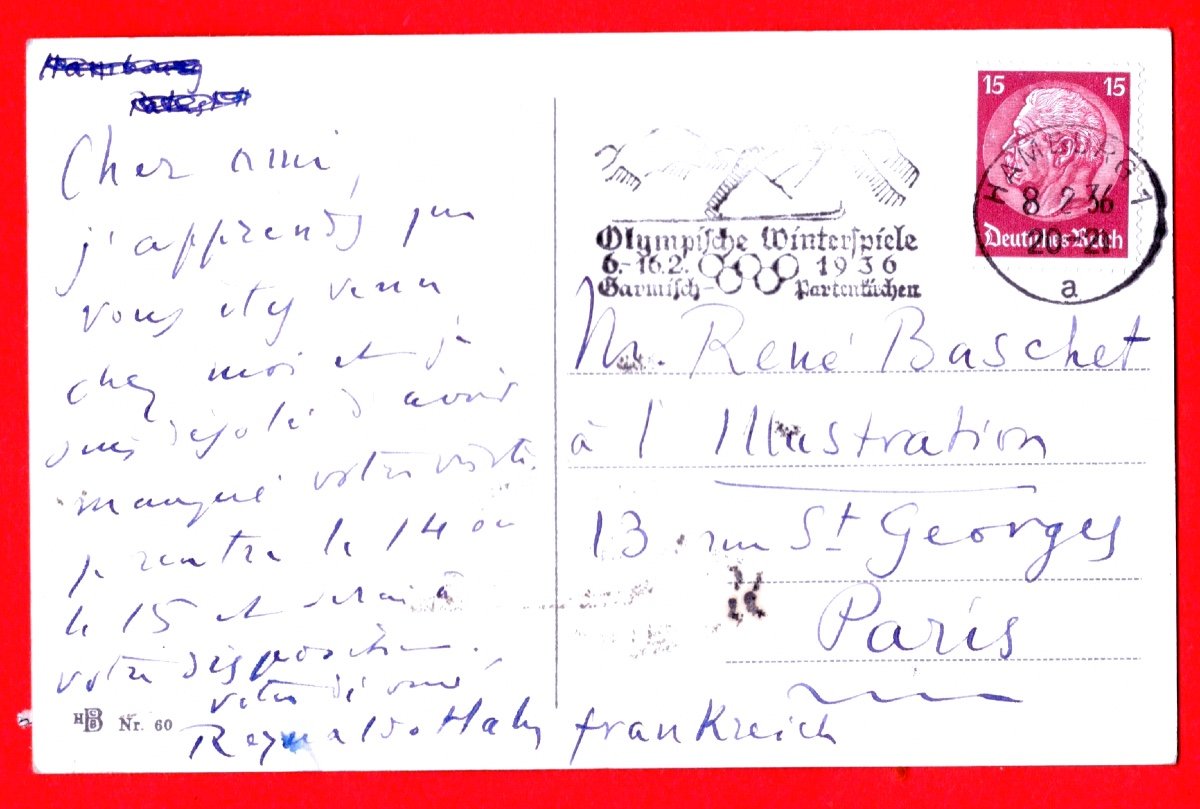 Hamburg
Cher ami,
j'apprends que
vous êtes venu
chez moi et je
suis désolé d'avoir
manqué votre visite.
je rentre le 14 ou
le 15 et serai à
votre disposition.
votre dévoué,
Reynaldo Hahn
HCB Nr. 60
15 15
Deutsches Reich
HAMBURG 1
8 2 36
20-21
a
Olympische Winterspiele
6.-16.2. 1936
Garmisch-Partenkirchen
Mr. René Baschet
à l'Illustration
13 rue St Georges
Paris
frankreich